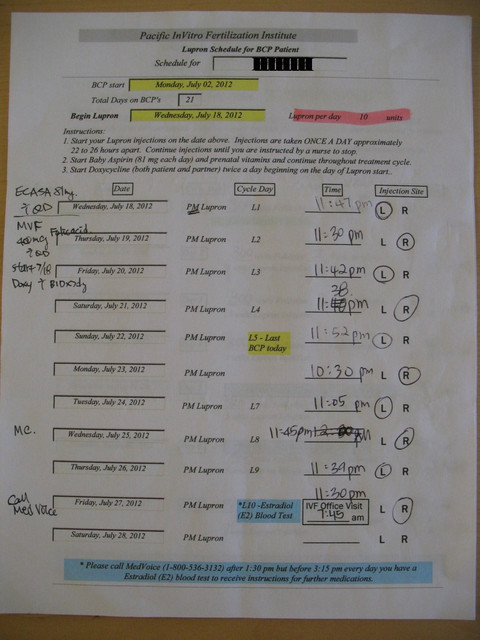 Pacific InVitro Fertilization Institute
Lupron Schedule for BCP Patient
Schedule for
BCP start Monday, July 02, 2012
Total Days on BCP's 21
Begin Lupron Wednesday, July 18, 2012 Lupron per day 10 units
Instructions:
1. Start your Lupron injections on the date above. Injections are taken ONCE A DAY approximately
22 to 26 hours apart. Continue injections until you are instructed by a nurse to stop.
2. Start Baby Aspirin (81 mg each day) and prenatal vitamins and continue throughout treatment cycle.
3. Start Doxycycline (both patient and partner) twice a day beginning on the day of Lupron start..
Date Cycle Day Time Injection Site
ECASA 81mg
QD Wednesday, July 18, 2012 PM Lupron L1 11:47pm L R
MVF
400mcg Folic acid Thursday, July 19, 2012 PM Lupron L2 11:30 pm L R
QD
start 7/18 Friday, July 20, 2012 PM Lupron L3 11:42pm L R
Doxy BID
38
Saturday, July 21, 2012 PM Lupron L4 11: pm L R
Sunday, July 22, 2012 PM Lupron L5 - Last BCP today 11:52pm L R
Monday, July 23, 2012 PM Lupron 10:30 pm L R
Tuesday, July 24, 2012 PM Lupron L7 11:05 pm L R
MC. Wednesday, July 25, 2012 PM Lupron L8 11:45pm L R
Thursday, July 26, 2012 PM Lupron L9 11:34pm L R
11:30pm
Call
MedVoice Friday, July 27, 2012 PM Lupron *L10 -Estradiol (E2) Blood Test IVF Office Visit 7:45 am L R
Saturday, July 28, 2012 PM Lupron L R
* Please call MedVoice (1-800-536-3132) after 1:30 pm but before 3:15 pm every day you have a
Estradiol (E2) blood test to receive instructions for further medications.